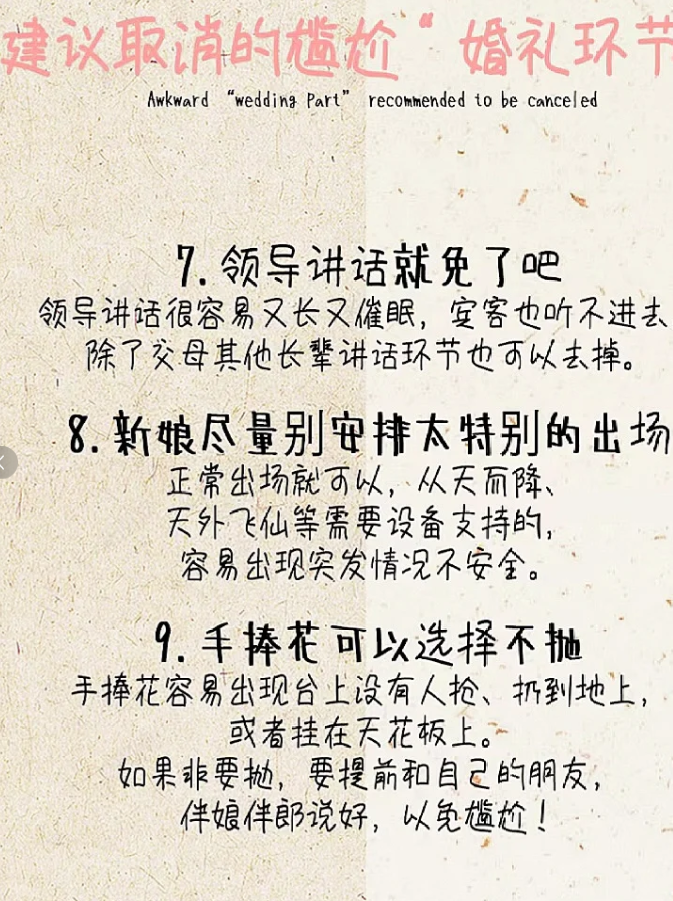 建议取消的尴尬“婚礼环节
Awkward “wedding Part” recommended to be canceled
7.领导讲话就免了吧
领导讲话很容易又长又催眠，宾客也听不进去
除了父母其他长辈讲话环节也可以去掉。
8.新娘尽量别安排太特别的出场
正常出场就可以，从天而降、
天外飞仙等需要设备支持的，
容易出现突发情况不安全。
9.手捧花可以选择不抛
手捧花容易出现台上没有人抢、扔到地上，
或者挂在天花板上。
如果非要抛，要提前和自己的朋友，
伴娘伴郎说好，以免尴尬！